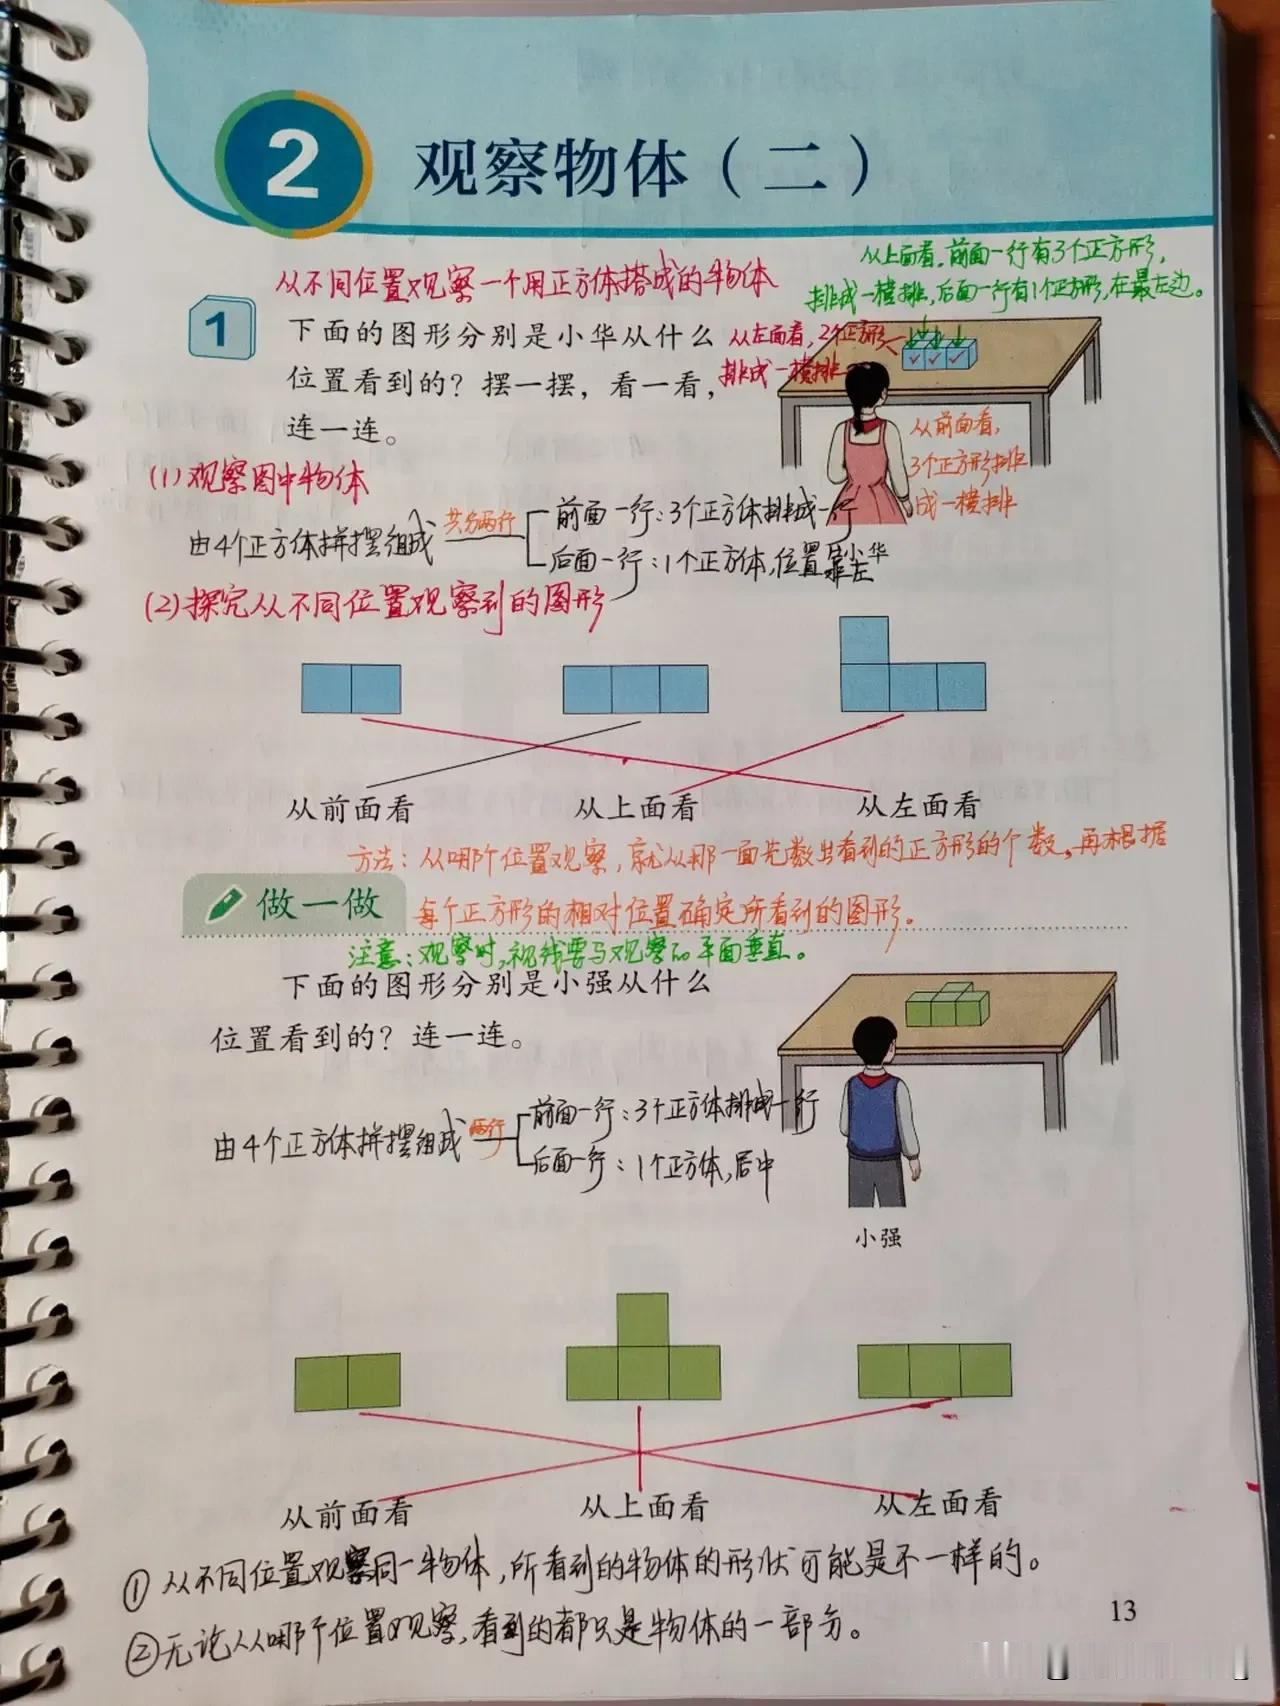 2
观察物体（二）
从不同位置观察一个用正方体搭成的物体
从上面看，前面一行有3个正方形，
排成一横排，后面一行有1个正方形，在最左边。
1
下面的图形分别是小华从什么
位置看到的？摆一摆，看一看，
连一连。
从左面看，2个正方形
排成一横排
从前面看，
3个正方形排
成一横排
小华
(1)观察图中物体
由4个正方体拼摆组成
共分两行
前面一行：3个正方体排成一行
后面一行：1个正方体，位置靠左
(2)探究从不同位置观察到的图形
从前面看
从上面看
从左面看
方法：从哪个位置观察，就从哪一面先数出看到的正方形的个数，再根据
每个正方形的相对位置确定所看到的图形。
做一做
注意：观察时，视线要与观察的平面垂直。
下面的图形分别是小强从什么
位置看到的？连一连。
由4个正方体拼摆组成
两行
前面一行：3个正方体排成一行
后面一行：1个正方体，居中
小强
从前面看
从上面看
从左面看
①从不同位置观察同一物体，所看到的物体的形状可能是不一样的。
②无论从哪个位置观察，看到的都只是物体的一部分。
13